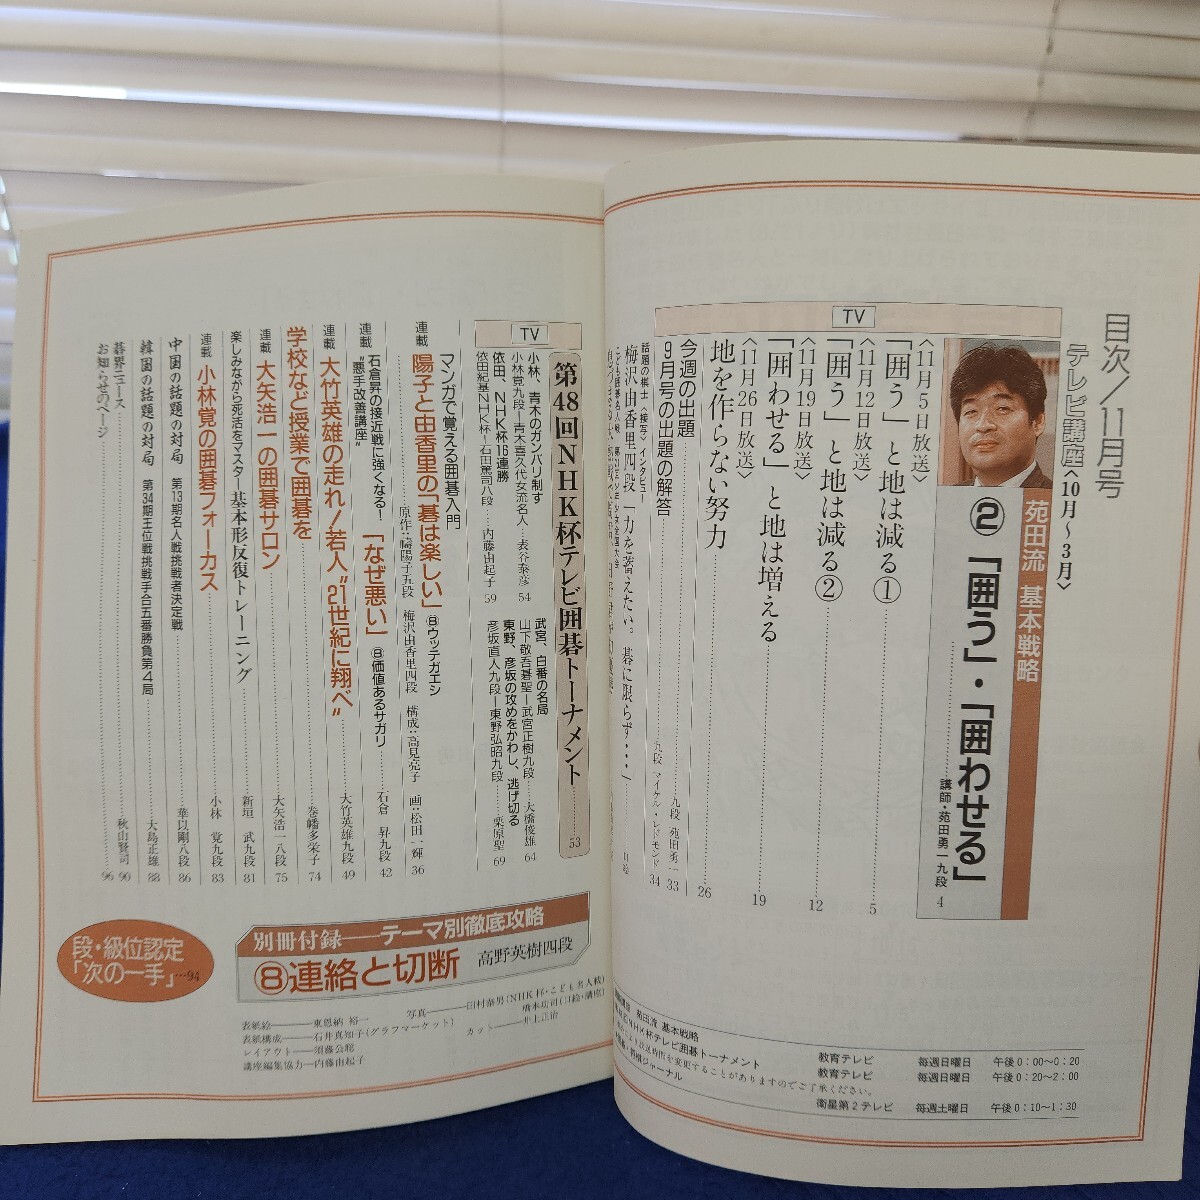 目次/11月号
テレビ講座〈10月～3月〉
TV
苑田流 基本戦略
②「囲う」・「囲わせる」
講師・苑田勇一九段 4
〈11月5日放送〉
「囲う」と地は減る① 5
〈11月12日放送〉
「囲う」と地は減る② 12
〈11月19日放送〉
「囲わせる」と地は増える 19
〈11月26日放送〉
地を作らない努力 26
今週の出題 九段 苑田勇一 33
9月号の出題の解答 九段 マイケル・レドモンド 34
話題の棋士〈接写〉インタビュー
梅沢由香里四段「力を蓄えたい。碁に限らず…」
TV
第48回NHK杯テレビ囲碁トーナメント 53
小林、青木のガンバリ制す
小林覚九段―青木喜久代女流名人 表谷泰彦 54
依田、NHK杯16連勝
依田紀基NHK杯―石田篤司八段 内藤由起子 59
武宮、白番の名局
山下敬吾碁聖―武宮正樹九段 大橋俊雄 64
東野、彦坂の攻めをかわし、逃げ切る
彦坂直人九段―東野弘昭九段 栗原聖 69
マンガで覚える囲碁入門
連載 陽子と由香里の「碁は楽しい」⑧ウッテガエシ
梅沢由香里四段 構成：高見亮子 画：松田一輝 36
石倉昇の接近戦に強くなる！
連載 “悪手改善講座” 「なぜ悪い」⑧価値あるサガリ 石倉 昇九段 42
連載 大竹英雄の走れ！若人“21世紀に翔べ” 大竹英雄九段 49
学校など授業で囲碁を 巻幡多栄子 74
連載 大矢浩一の囲碁サロン 大矢浩一八段 75
楽しみながら死活をマスター 基本形反復トレーニング 新垣 武九段 81
連載 小林覚の囲碁フォーカス 小林 覚九段 83
中国の話題の対局 第13期名人戦挑戦者決定戦 華以剛八段 86
韓国の話題の対局 第34期王位戦挑戦手合五番勝負第4局 大島正雄 88
碁界ニュース 秋山賢司 90
お知らせのページ 96
別冊付録――テーマ別徹底攻略
⑧連絡と切断 高野英樹四段
段・級位認定
「次の一手」…94
表紙絵――東恩納 裕一
表紙構成――石井真知子(グラフマーケット)
レイアウト――須藤公聡
講座編集協力――内藤由起子
写真――田村泰男(NHK杯・こども名人戦)
カット――井上正治
苑田流 基本戦略 教育テレビ 毎週日曜日 午後0：00～0：20
NHK杯テレビ囲碁トーナメント 教育テレビ 毎週日曜日 午後0：20～2：00
変更することがありますのでご了承ください。
ジャーナル 衛星第2テレビ 毎週土曜日 午後0：10～1：30